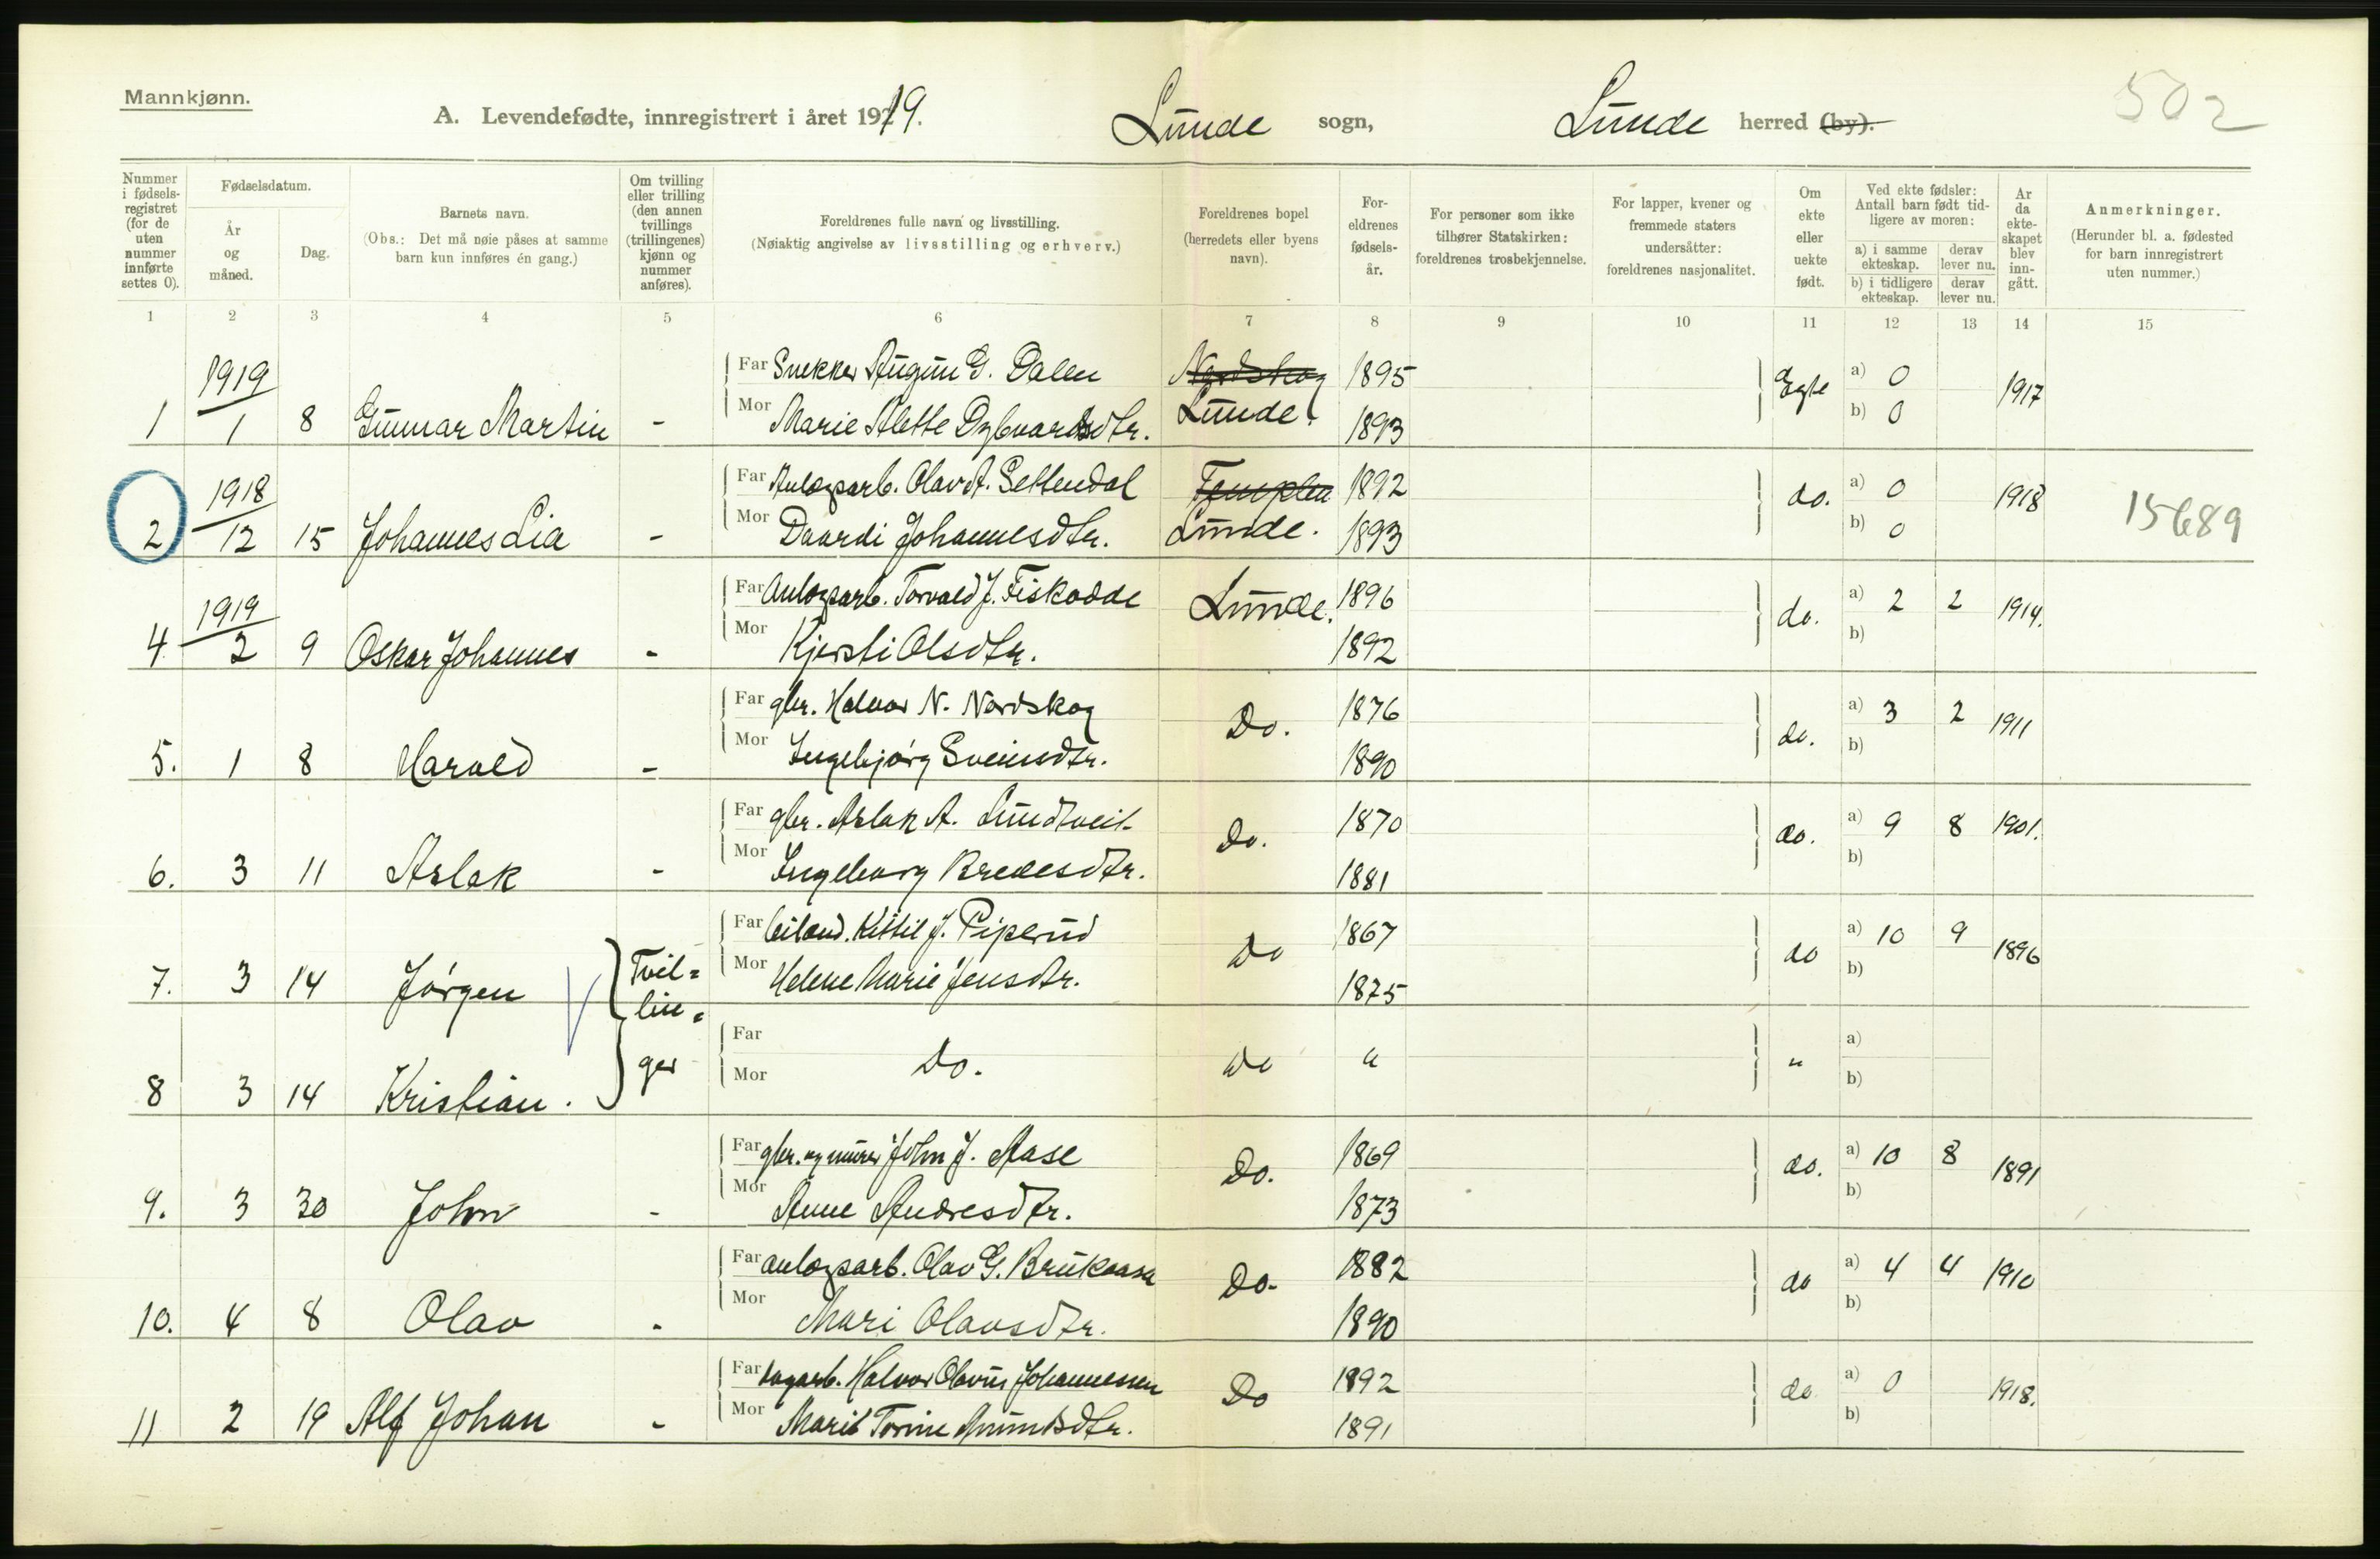 Mannkjønn.
A. Levendefødte, innregistrert i året 1919.
Lunde sogn,
Lunde herred (by).
502
Nummer i fødselsregistret (for de uten nummer innførte settes 0).
Fødselsdatum.
År og måned.
Dag.
Barnets navn.
(Obs.: Det må nøie påses at samme barn kun innføres én gang.)
Om tvilling eller trilling (den annen tvillings (trillingenes) kjønn og nummer anføres).
Foreldrenes fulle navn og livsstilling.
(Nøiaktig angivelse av livsstilling og erhverv.)
Foreldrenes bopel (herredets eller byens navn).
Foreldrenes fødselsår.
For personer som ikke tilhører Statskirken: foreldrenes trosbekjennelse.
For lapper, kvener og fremmede staters undersåtter: foreldrenes nasjonalitet.
Om ekte eller uekte født.
Ved ekte fødsler: Antall barn født tidligere av moren:
a) i samme ekteskap. derav lever nu.
b) i tidligere ekteskap. derav lever nu.
Ar da ekteskapet blev inngått.
Anmerkninger.
(Herunder bl. a. fødested for barn innregistrert uten nummer.)
1 2 3 4 5 6 7 8 9 10 11 12 13 14 15
1919
Far Snekker Augun G. Dalen Nordskog 1895 Egte a) 0 1917
1 1 8 Gunnar Martin - Mor Marie Alette Dybvardsdtr. Lunde. 1893 b) 0
1918
Far Anlægsarb. Olav A. Settendal 1892 do. a) 0 1918
2 12 15 Johannes Lia - Mor Daardi Johannesdtr. Lunde. 1893 b) 0 15689
1919
Far Anlægsarb. Torvald J. Fiskodde Lunde. 1896 do. a) 2 2 1914.
4 2 9 Oskar Johannes - Mor Kjersti Olsdtr. 1892 b)
Far gbr. Halvor N. Nordskog Do. 1876 do. a) 3 2 1911
5. 1 8 Harald - Mor Ingebjørg Sveinsdtr. 1890 b)
Far gbr. Aslak A. Lundtveit Do. 1870 do. a) 9 8 1901.
6. 3 11 Aslak - Mor Ingeborg Bredesdtr. 1881 b)
Far leilænd. Kittil J. Piperud Do 1867 do a) 10 9 1896
7. 3 14 Jørgen Tvil= Mor Helene Marie Jensdtr. 1875 b)
lin=
Far Do. Do " " a)
8 3 14 Kristian. ger Mor b)
Far gbr. og murer John J. Aase Do. 1869 do. a) 10 8 1891
9. 3 30 John - Mor Anne Andresdtr. 1873 b)
Far anlægsarb. Olav G. Brukaasa Do. 1882 do a) 4 4 1910
10. 4 8 Olav - Mor Mari Olavsdtr. 1890 b)
Far Halvor Olavus Johannessen Do 1892 do a) 0 1918.
11 2 19 Alf Johan - Mor Marit Torine Amundsdtr. 1891 b)